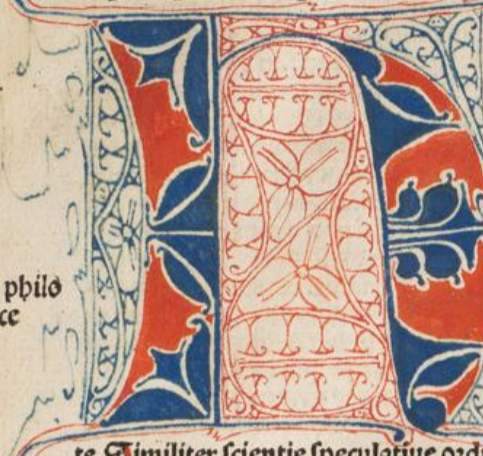 philo
ce
te Similiter scientie speculatiue ordi